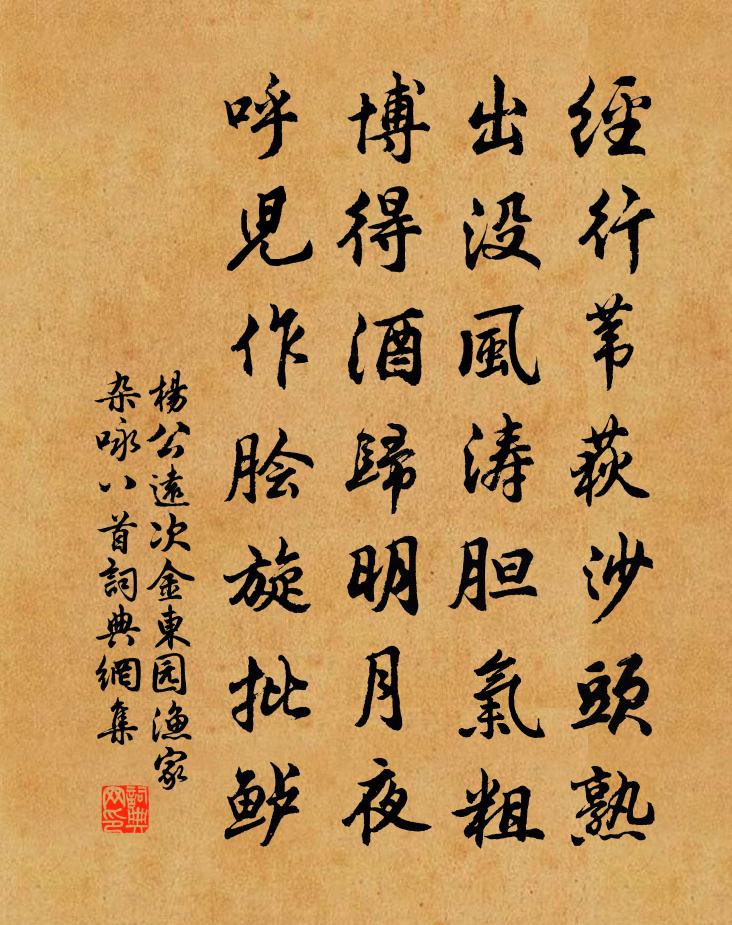 經行苇萩沙頭熟
出没風涛胆氣粗
博得酒歸明月夜
呼児作脍旋批鲈
楊公遠次金東园漁家
杂咏八首詞典網集
詞典网印